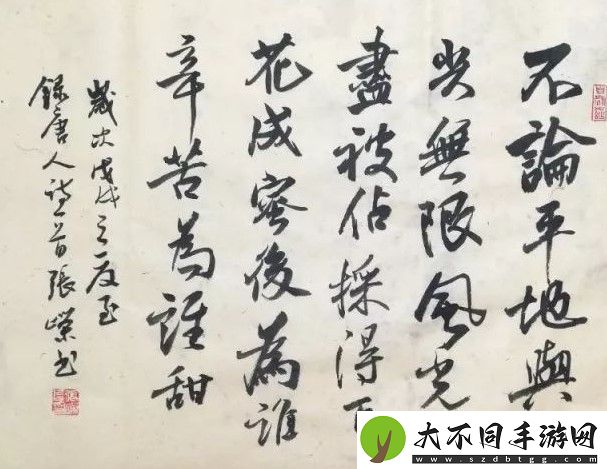 不論平地與
尖無限風光
盡被佔採得百
花成蜜後為誰
辛苦為誰甜
歲次戊戌之夏至
錄唐人詩一首張嶸书
大不同手游网
www.szdbtgg.com